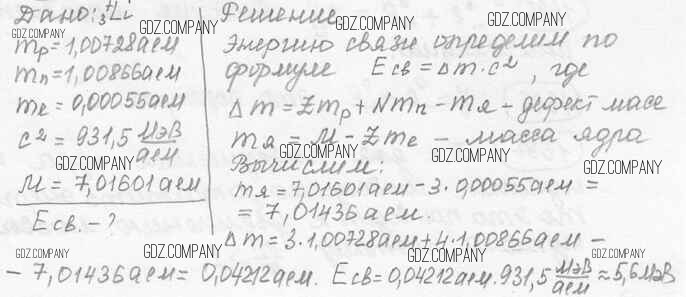 Дано: ⁷₃Li
GDZ.COMPANY
mp=1,00728аем
mn=1,00866аем
me=0,00055аем
c²=931,5 МэВ/аем
GDZ.COMPANY
M=7,01601аем
Eсв.-?
GDZ.COMPANY
Решение
GDZ.COMPANY
GDZ.COMPANY
GDZ.COMPANY
Энергию связи определим по
формуле Eсв=Δm·c², где
GDZ.COMPANY
GDZ.COMPANY
Δm=Zmp+Nmn-mя-дефект масс
mя=M-Zme-масса ядра
GDZ.COMPANY
GDZ.COMPANY
GDZ.COMPANY
Вычислим:
mя=7,01601аем-3·0,00055аем=
=7,01436аем.
GDZ.COMPANY
GDZ.COMPANY
GDZ.COMPANY
Δm=3·1,00728аем+4·1,00866аем-
-7,01436аем=0,04212аем. Eсв=0,04212аем·931,5 МэВ/аем≈5,6МэВ
GDZ.COMPANY
GDZ.COMPANY
GDZ.COMPANY